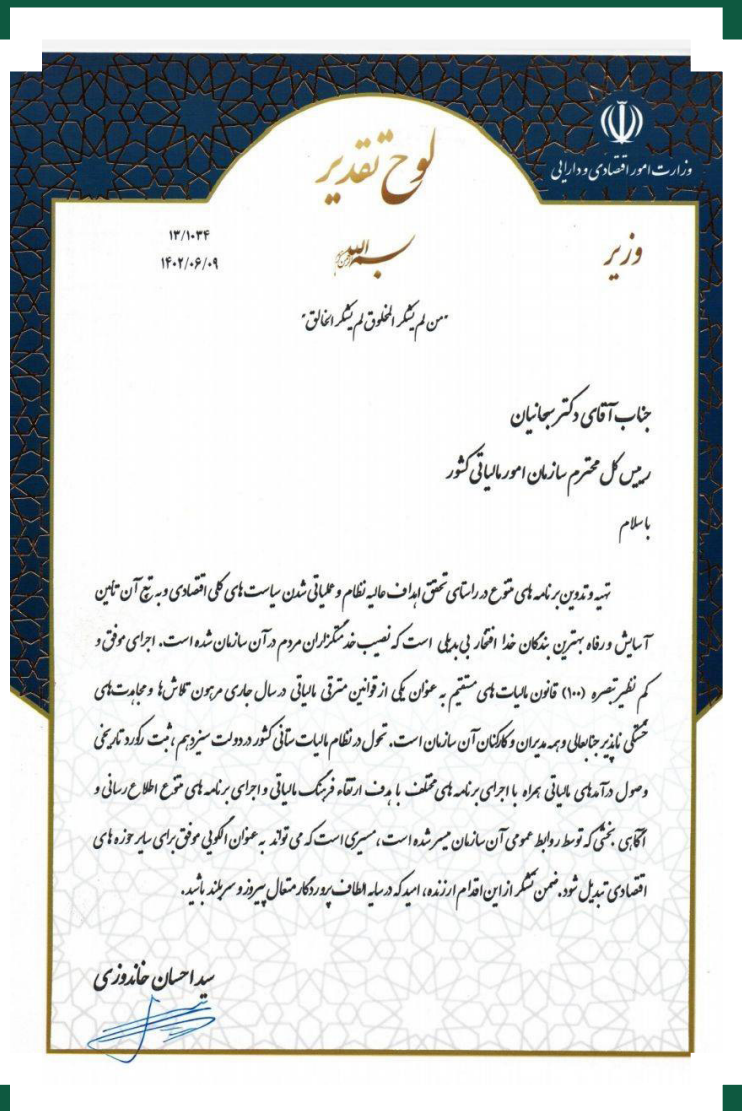 لوح تقدیر
وزارت امور اقتصادی و دارایی
وزیر
۱۳/۱۰۳۴
۱۴۰۲/۰۶/۰۹
بسم الله الرحمن الرحیم
"من لم یشکر المخلوق لم یشکر الخالق"
جناب آقای دکتر سبحانیان
رییس کل محترم سازمان امور مالیاتی کشور
با سلام
تهیه و تدوین برنامه های متنوع در راستای تحقق اهداف عالیه نظام و عملیاتی شدن سیاست های کلی اقتصادی و به تبع آن تامین
آسایش و رفاه بهترین بندگان خدا افتخار بی بدیلی است که نصیب خدمتگزاران مردم در آن سازمان شده است. اجرای موفق و
کم نظیر تبصره (۱۰۰) قانون مالیات های مستقیم به عنوان یکی از قوانین مترقی مالیاتی در سال جاری مرهون تلاش ها و مجاهدت های
خستگی ناپذیر جنابعالی و همه مدیران و کارکنان آن سازمان است. تحول در نظام مالیات ستانی کشور در دولت سیزدهم، ثبت رکورد تاریخی
وصول درآمدهای مالیاتی همراه با اجرای برنامه های مختلف با هدف ارتقاء فرهنگ مالیاتی و اجرای برنامه های متنوع اطلاع رسانی و
آگاهی بخشی که توسط روابط عمومی آن سازمان میسر شده است، مسیری است که می تواند به عنوان الگویی موفق برای سایر حوزه های
اقتصادی تبدیل شود. ضمن تشکر از این اقدام ارزنده، امید که در سایه الطاف پروردگار متعال پیروز و سربلند باشید.
سید احسان خاندوزی